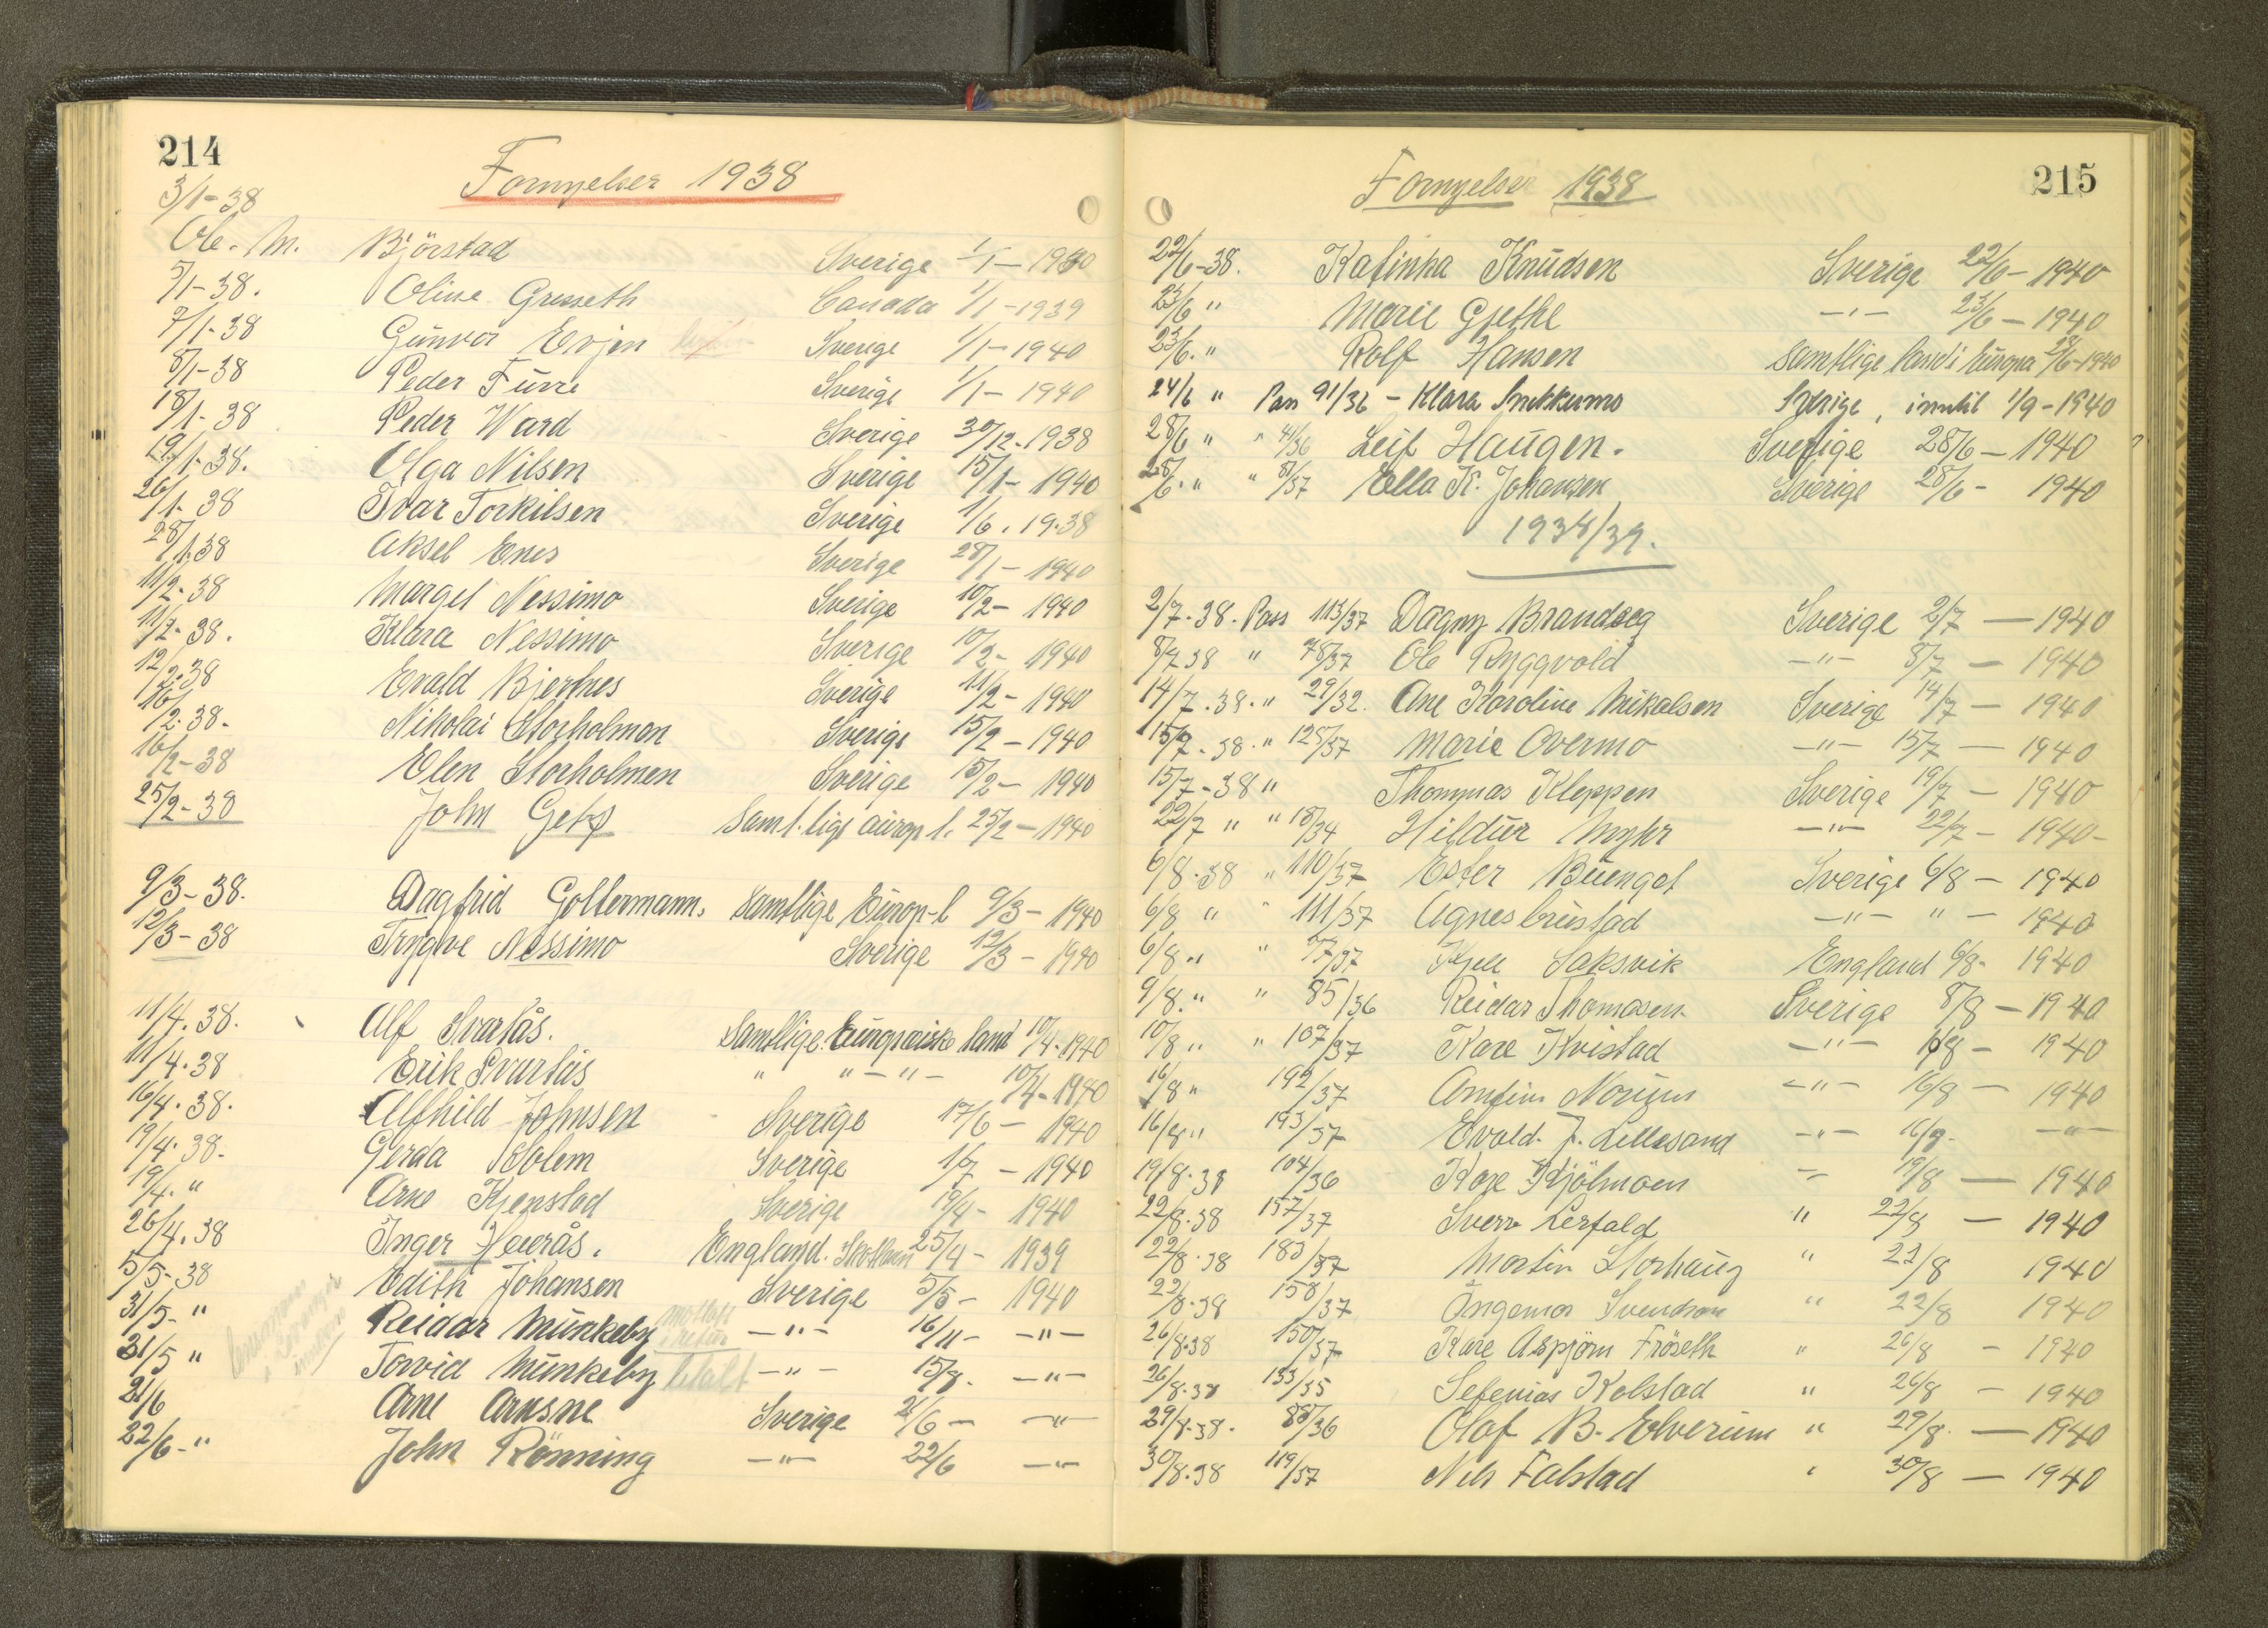 214
Fornyelser 1938
3/1-38
Ole. M. Björstad Sverige 1/1-1940
5/1-38. Oline Gresseth Canada 1/1-1939
7/1-38 Gunvor Evjen Sverige 1/1-1940
8/1-38 Peder Furre Sverige 1/1-1940
18/1-38 Peder Ward Sverige 30/12-1938
19/1-38. Olga Nilsen Sverige 15/1-1940
26/1-38 Ivar Torkilsen Sverige 1/6. 19.38
28/1.38 Aksel Enes Sverige 28/1-1940
11/2-38 Margit Nessimo Sverige 10/2-1940
11/2-38. Klara Nessimo Sverige 10/2-1940
12/2.38 Evald Bjertnes Sverige 11/2-1940
16/2.38. Nikolai Storholmen Sverige 15/2-1940
16/2-38 Elen Storholmen Sverige 15/2-1940
25/2-38 John Samt.lige europ l. 25/2-1940
9/3-38. Dagfrid Goltermann. Samtlige Europ-l 9/3-1940
12/3-38 Trygve Nessimo Sverige 12/3-1940
11/4.38. Alf Svartås. Samtlige Europeiske land 10/4-1940
11/4.38 Erik Svartås " " - " - 10/4-1940
16/4.38. Alfhild Johnsen Sverige 17/6-1940
19/4.38. Gerda Sverige 1/7-1940
19/4. " Arne Kjenstad Sverige 19/4-1940
26/4.38 Inger Heierås. England. 25/4-1939
5/5-38 Edith Johansen Sverige 5/5-1940
31/5- " Reidar Munkeby - " - 16/11- - " -
31/5 " Torvid Munkeby betalt - " - 15/8. - " -
21/6 Arne Arnsne Sverige 21/6- - " -
22/6- " John Rönning - " - 22/6 - " -
215
Fornyelser 1938
22/6-38. Katinka Knudsen Sverige 22/6-1940
23/6 " Marie Gjethe - " - 23/6-1940
23/6. " Rolf Hansen Samtlige land i Europa 23/6-1940
24/6 " Pass 91/36 - Klara Snekkermo Sverige, inntil 1/9-1940
28/6 " " 41/36 Leif Haugen. Sverige 28/6-1940
28/6. " " 81/37 Ella K. Johansen Sverige 28/6-1940
1938/39.
2/7.38. Pass 113/37 Dagny Brandseg Sverige 2/7-1940
8/7 38 " 78/37 Ole Ryggvold - " - 8/7-1940
14/7.38. " 29/32. Ane Karoline Mikalsen Sverige 14/7-1940
15/7-38. " 125/37 Marie Overmo - " - 15/7-1940
15/7-38 " Thommas Kleppen Sverige 19/7-1940
22/7 " " 18/34 Hildur Myhr - " - 22/7-1940-
6/8.38 " 110/37 Ester Buengot Sverige 6/8-1940
6/8 " " 111/37 Agnes - " - " - 1940
6/8 " " 77/37 Kjell Saksvik England 6/8-1940
9/8. " " 85/36 Reidar Thomasen Sverige 8/8-1940
10/8 " " 107/37 Kare Kvistad - " - 10/8-1940
16/8 " 192/37 Arnfinn Norum - " - 16/8-1940
16/8 " 193/37 Evald. J. Lillesand - " - 16/8. - " -
19/8.38 104/36 Kare Kjölmoen - " - 19/8-1940
22/8.38 157/37 Sverr Lerfald " 22/8-1940
22/8.38 183/37 Martin Storhaug " 22/8 1940
22/8.38 158/37 Ingemar Svendsen " 22/8 1940
26/8.38 150/37 Kare Aspjörn Fröseth " 26/8-1940
26/8.38 133/35 Sefenias Kolstad " 26/8-1940
29/8.38. 88/36 Olaf B. Elverum " 29/8.-1940
30/8.38 119/37 Nels Falstad " 30/8-1940